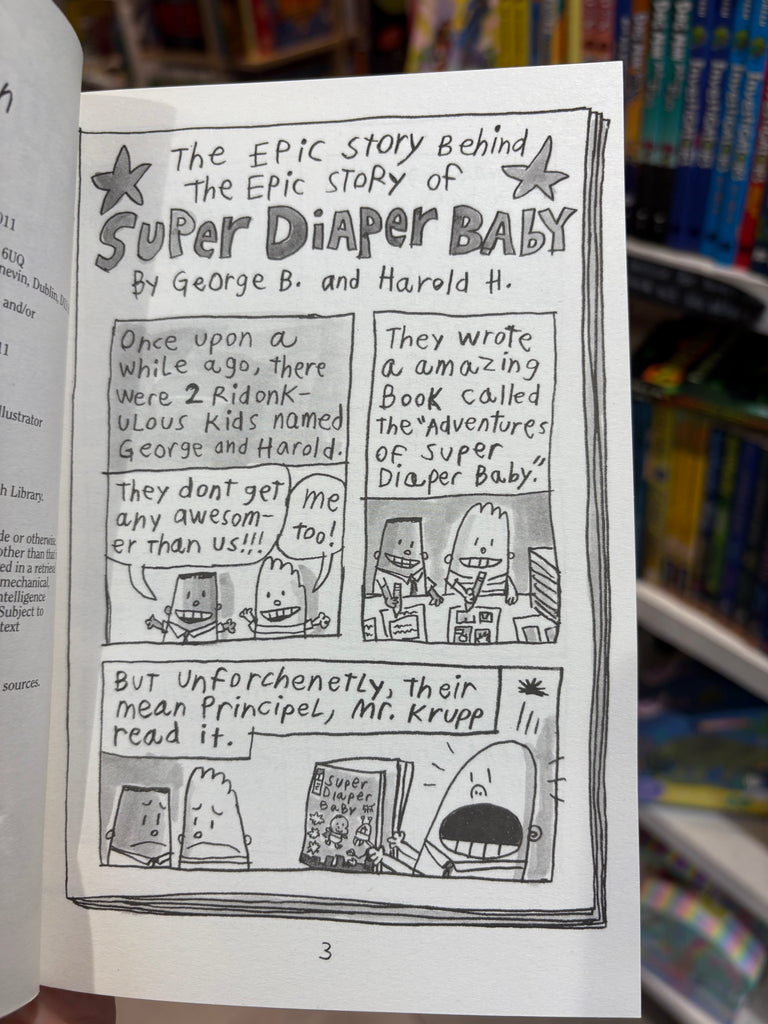 011
6UQ
nevin, Dublin,
and/or
11
llustrator
h Library.
de or otherwise
other than
ed in a
mechanical,
ntelligence
Subject to
text
sources.
The EPiC Story Behind
The EPiC STORY of
SUPER DIAPER BABY
By George B. and Harold H.
Once upon a
while ago, there
were 2 RidonK-
ulous Kids named
George and Harold.
They dont get
any awesom-
er Than us!!!
me
too!
They wrote
a amazing
Book called
The "Adventures
of Super
Diaper Baby."
BUT Unforchenetly, Their
mean Principel, Mr. Krupp
read it.
Super
Diaper
Baby
3